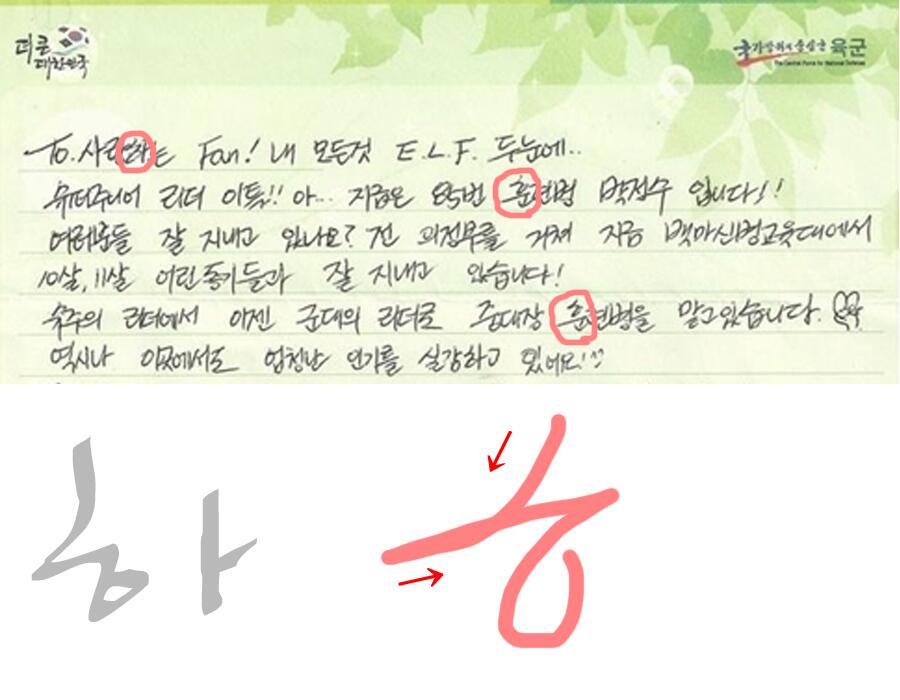 더 큰
대한민국
국가방위의 중심군 육군
The Central Force for National Defense
To. 사랑하는 Fan! 내 모든것 E.L.F. 두눈에..
슈퍼주니어 리더 이특!! 아... 지금은 훈련병 박정수 입니다!!
여러분들 잘 지내고 있나요? 전 의정부를 거쳐 지금 백마신병교육대에서
10살, 11살 어린 동기들과 잘 지내고 있습니다!
슈주의 리더에서 이젠 군대의 리더로 중대장 훈련병을 맡고있습니다.
역시나 이곳에서도 엄청난 인기를 실감하고 있어요!^^
하 ㅎ